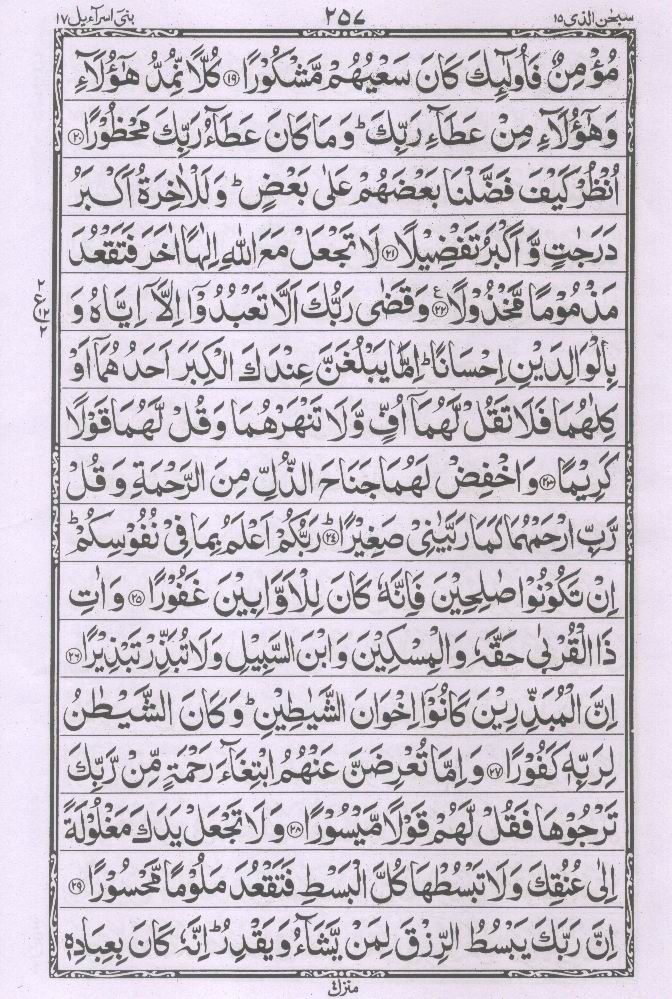 سبحٰن الذی ۱۵ ۲۵۷ بنی اسرآءیل ۱۷
مُؤْمِنٌ فَاُولٰٓئِكَ كَانَ سَعْيُهُمْ مَّشْكُوْرًا ﴿۱۹﴾ كُلًّا نُّمِدُّ هٰٓؤُلَآءِ
وَهٰٓؤُلَآءِ مِنْ عَطَآءِ رَبِّكَ ؕ وَمَا كَانَ عَطَآءُ رَبِّكَ مَحْظُوْرًا ﴿۲۰﴾
اُنْظُرْ كَيْفَ فَضَّلْنَا بَعْضَهُمْ عَلٰى بَعْضٍ ؕ وَلَلْاٰخِرَةُ اَكْبَرُ
دَرَجٰتٍ وَّ اَكْبَرُ تَفْضِيْلًا ﴿۲۱﴾ لَا تَجْعَلْ مَعَ اللّٰهِ اِلٰهًا اٰخَرَ فَتَقْعُدَ
مَذْمُوْمًا مَّخْذُوْلًا ﴿۲۲﴾ ع وَقَضٰى رَبُّكَ اَلَّا تَعْبُدُوْۤا اِلَّاۤ اِيَّاهُ وَ
۲ ع ۱۲ ۲
بِالْوَالِدَيْنِ اِحْسَانًا ؕ اِمَّا يَبْلُغَنَّ عِنْدَكَ الْكِبَرَ اَحَدُهُمَاۤ اَوْ
كِلٰهُمَا فَلَا تَقُلْ لَّهُمَاۤ اُفٍّ وَّلَا تَنْهَرْهُمَا وَقُلْ لَّهُمَا قَوْلًا
كَرِيْمًا ﴿۲۳﴾ وَاخْفِضْ لَهُمَا جَنَاحَ الذُّلِّ مِنَ الرَّحْمَةِ وَقُلْ
رَّبِّ ارْحَمْهُمَا كَمَا رَبَّيٰنِيْ صَغِيْرًا ﴿۲۴﴾ ؕ رَبُّكُمْ اَعْلَمُ بِمَا فِيْ نُفُوْسِكُمْ ؕ
اِنْ تَكُوْنُوْا صٰلِحِيْنَ فَاِنَّهٗ كَانَ لِلْاَوَّابِيْنَ غَفُوْرًا ﴿۲۵﴾ وَاٰتِ
ذَا الْقُرْبٰى حَقَّهٗ وَالْمِسْكِيْنَ وَابْنَ السَّبِيْلِ وَلَا تُبَذِّرْ تَبْذِيْرًا ﴿۲۶﴾
اِنَّ الْمُبَذِّرِيْنَ كَانُوْۤا اِخْوَانَ الشَّيٰطِيْنِ ؕ وَكَانَ الشَّيْطٰنُ
لِرَبِّهٖ كَفُوْرًا ﴿۲۷﴾ وَاِمَّا تُعْرِضَنَّ عَنْهُمُ ابْتِغَآءَ رَحْمَةٍ مِّنْ رَّبِّكَ
تَرْجُوْهَا فَقُلْ لَّهُمْ قَوْلًا مَّيْسُوْرًا ﴿۲۸﴾ وَلَا تَجْعَلْ يَدَكَ مَغْلُوْلَةً
اِلٰى عُنُقِكَ وَلَا تَبْسُطْهَا كُلَّ الْبَسْطِ فَتَقْعُدَ مَلُوْمًا مَّحْسُوْرًا ﴿۲۹﴾
اِنَّ رَبَّكَ يَبْسُطُ الرِّزْقَ لِمَنْ يَّشَآءُ وَيَقْدِرُ ؕ اِنَّهٗ كَانَ بِعِبَادِهٖ
منزل ۴